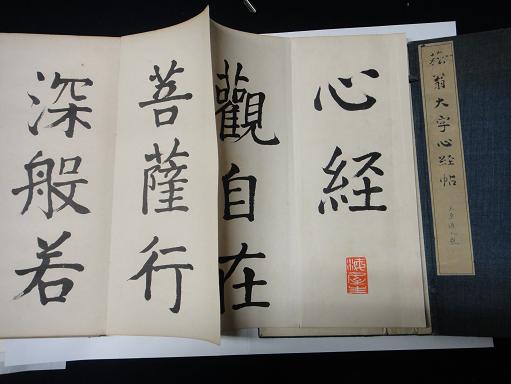 菘翁大字心経帖
心経
觀自在
菩薩行
深般若